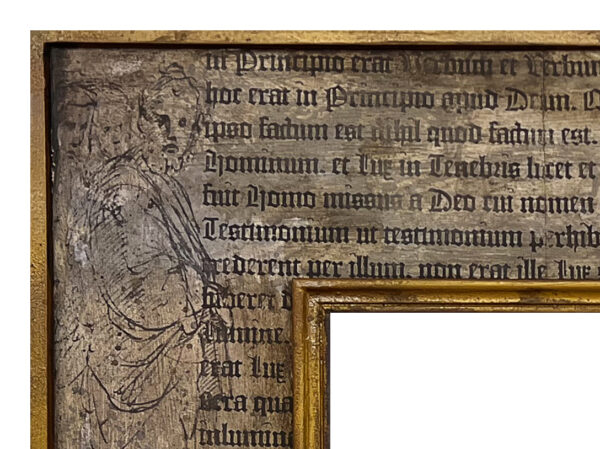 in Principio erat Verbum et Verbum
hoc erat in Principio apud Deum.
ipso factum est nihil quod factum est.
hominum. et lux in Tenebris lucet et
fuit homo missus a Deo cui nomen
Testimonium ut testimonium perhib
crederent per illum. non erat ille lux
hiberet d
lumine.
erat lux
vera qua
inlumina